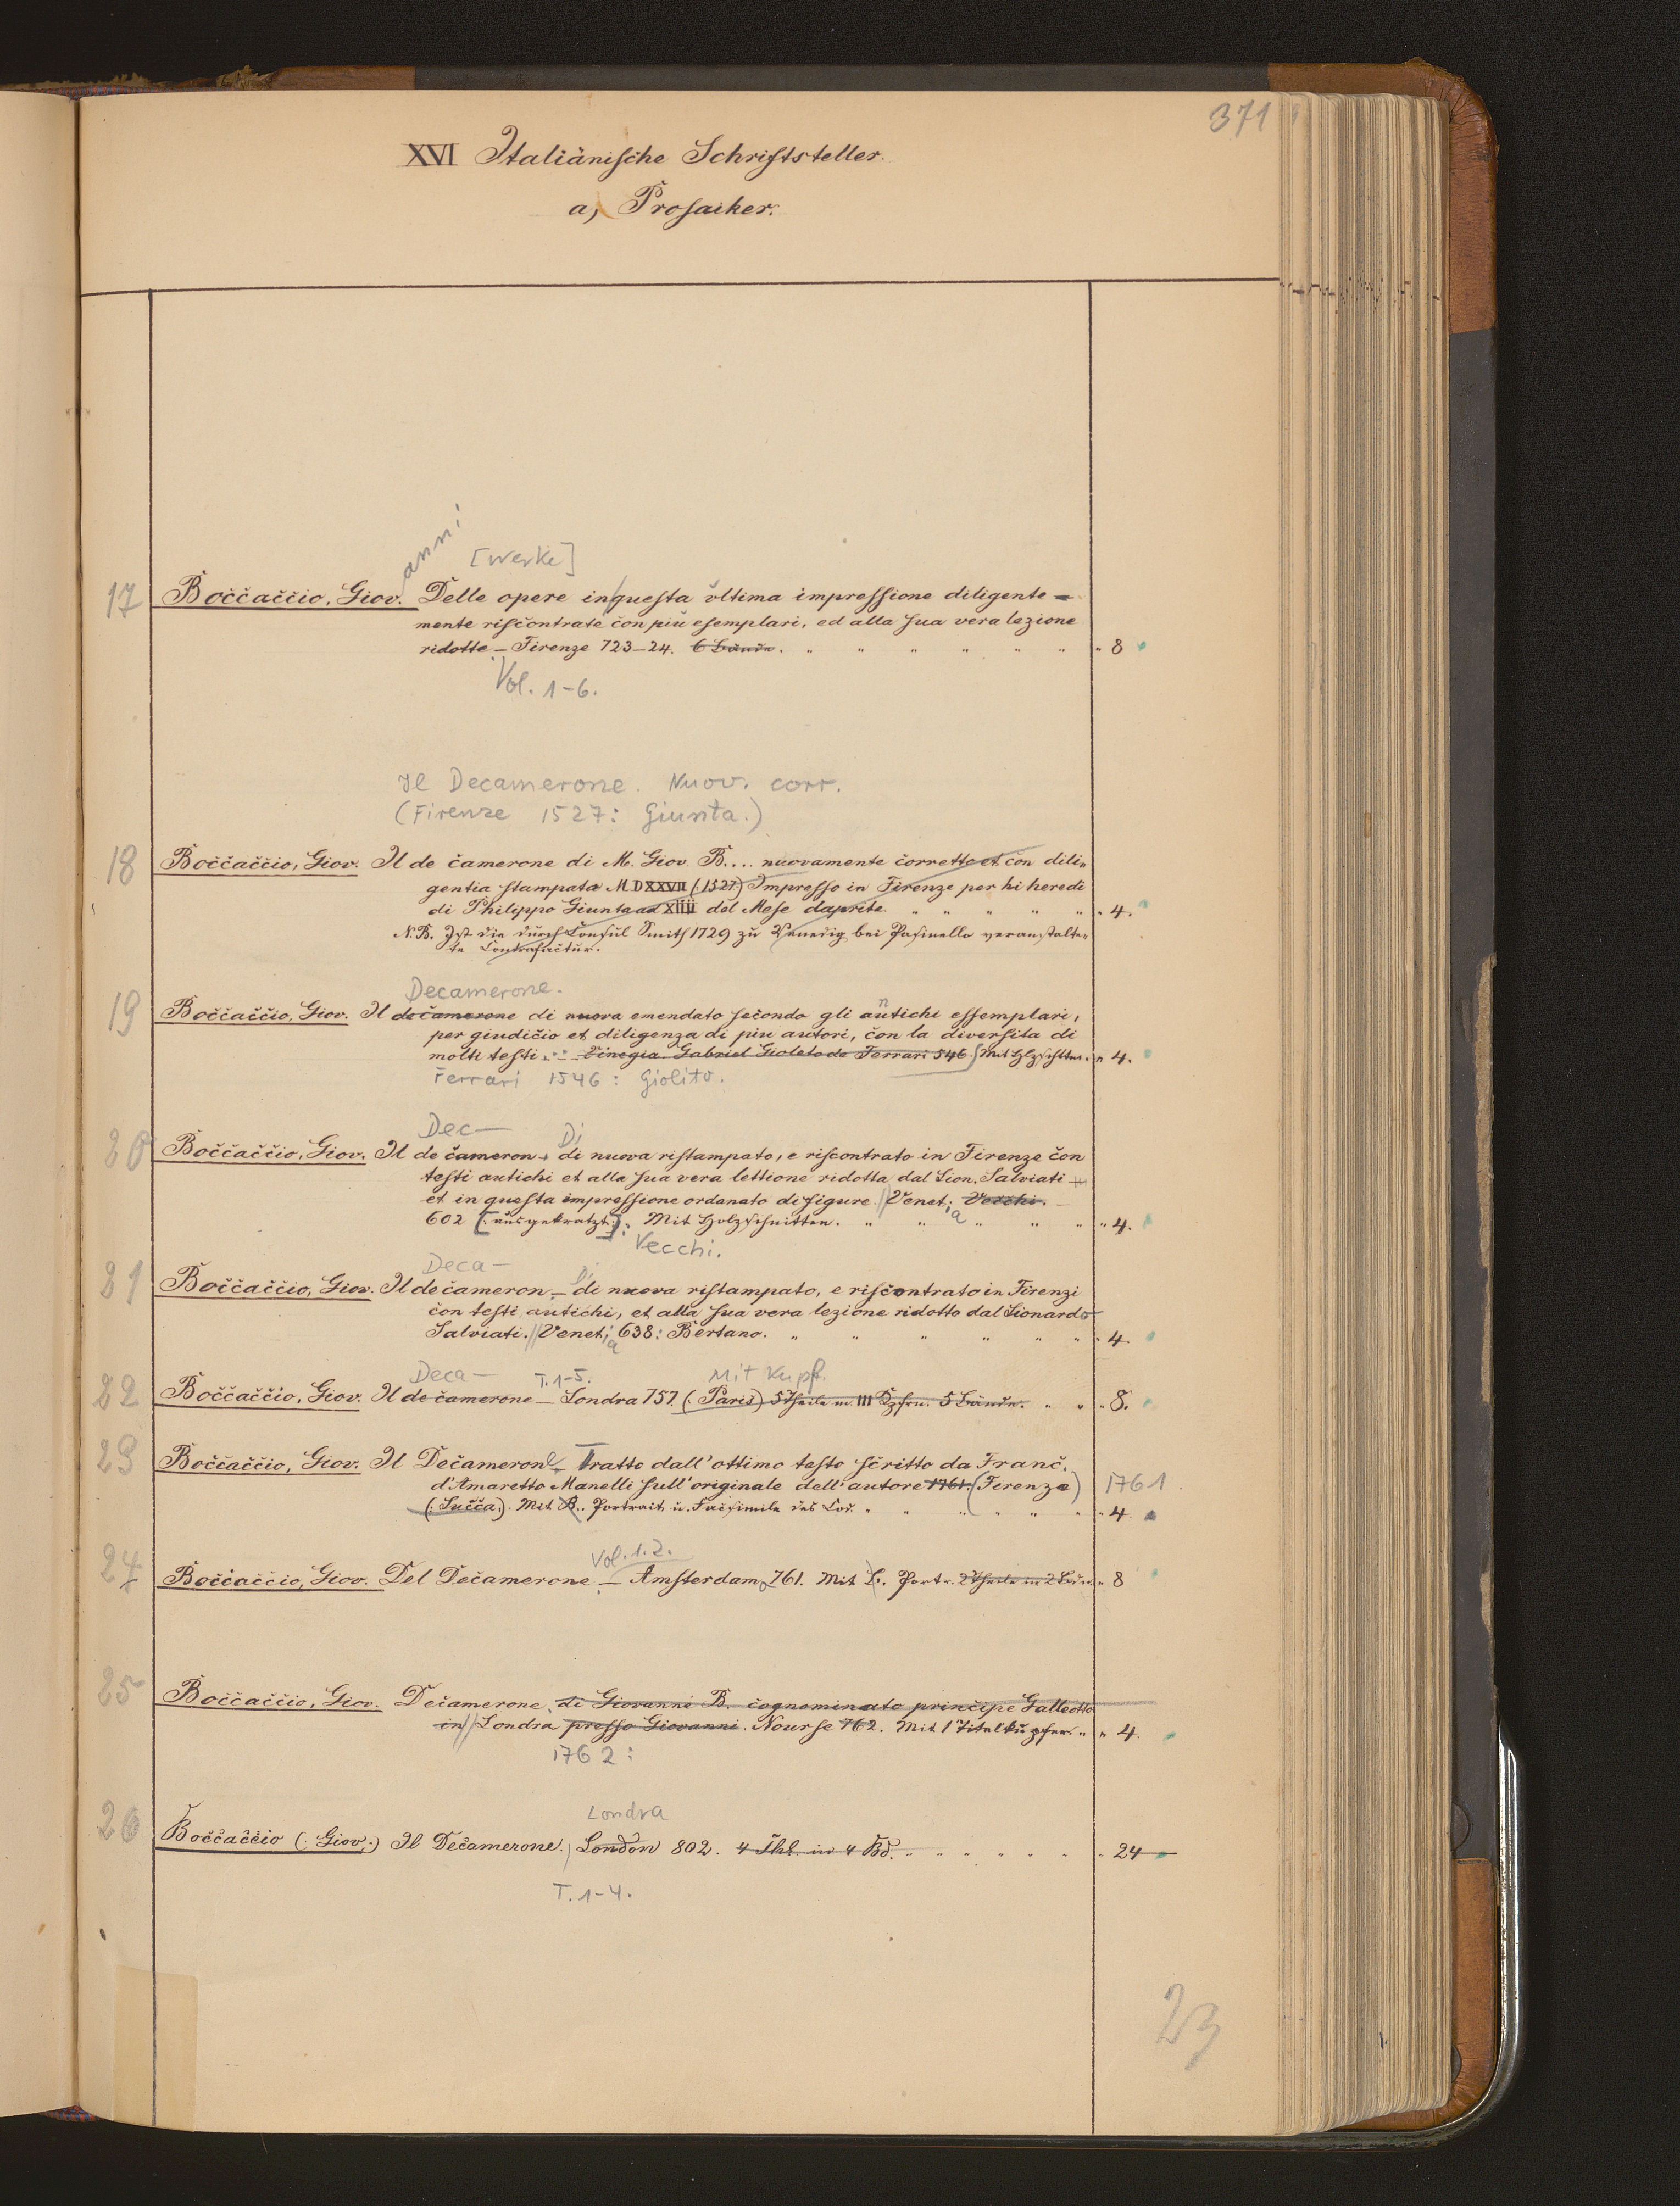 371
XVI Italiänische Schriftsteller.
a, Prosaiker.
anni
[Werke]
17 Boccaccio, Giov. Delle opere in questa ultima impressione diligente-
mente riscontrate con più esemplari, ed alla sua vera lezione
ridotte. – Firenze 723–24. 6 Bände. " " " " " " " 8
Vol. 1-6.
Il Decamerone. Nuov. corr.
(Firenze 1527: Giunta.)
18 Boccaccio, Giov. Il de camerone di M. Giov B.... nuovamente corretto et con dili=
gentia stampata MDXXVII (:1527:) Impresso in Firenze per hi heredi
di Philippo Giunta ad XIIII del Mese daprile. " " " " " " 4.
N.B. Ist die durch Consul Smith 1729 zu Venedig bei Pasinello veranstalte=
te Contrafactur.
Decamerone.
19 Boccaccio, Giov. Il decamerone di nuovo emendato secondo gli antichi essemplari,
per giudicio et diligenza di piu autori, con la diversita di
molti testi. – Vinegia Gabriel Gioleto de Ferrari 546. Mit Hlzschttn. " 4.
Ferrari 1546: Giolito.
Dec— Di
20 Boccaccio, Giov. Il de cameron di nuovo ristampato, e riscontrato in Firenze con
testi antichi et alla sua vera lettione ridotta dal Lion. Salviati
et in questa impressione ordanato di figure. // Venet; a Vecchi.
602 [:ausgekratzt:]. Mit Holzschnitten. " " " " " " 4.
Vecchi.
Deca— Di
21 Boccaccio, Giov. Il de cameron – di nuovo ristampato, e riscontrato in Firenzi
con testi antichi, et alla sua vera lezione ridotto dal Lionardo
Salviati. // Venet; a 638: Bertano. " " " " " " " 4.
Deca— T. 1-5. Mit Kupf.
22 Boccaccio, Giov. Il de camerone – Londra 757. (: Paris) 5 Theile m. III Kpfrn. 5 Bände. " " " 8.
23 Boccaccio, Giov. Il Decamerone Tratto dall'ottimo testo scritto da Franc.
d'Amaretto Manelli sull'originale dell'autore 1761. (Firenze) 1761.
(: Lucca:). Mit B.. Portrait u. Facsimile des Cod. " " " " " " " 4.
Vol. 1. 2.
24 Boccaccio, Giov. Del Decamerone – Amsterdam 761. Mit B. Portr. 2 Theile in 2 Bdn. " 8
25 Boccaccio, Giov. Decamerone di Giovanni B. cognominato principe Galleotto
in // Londra presso Giovanni. Nourse 762. Mit 1 Titelkupfer. " " 4.
1762:
Londra
26 Boccaccio (: Giov:) Il Decamerone. London 802. 4 Thl. in 4 Bd. " " " " " " 24
T. 1-4.
23